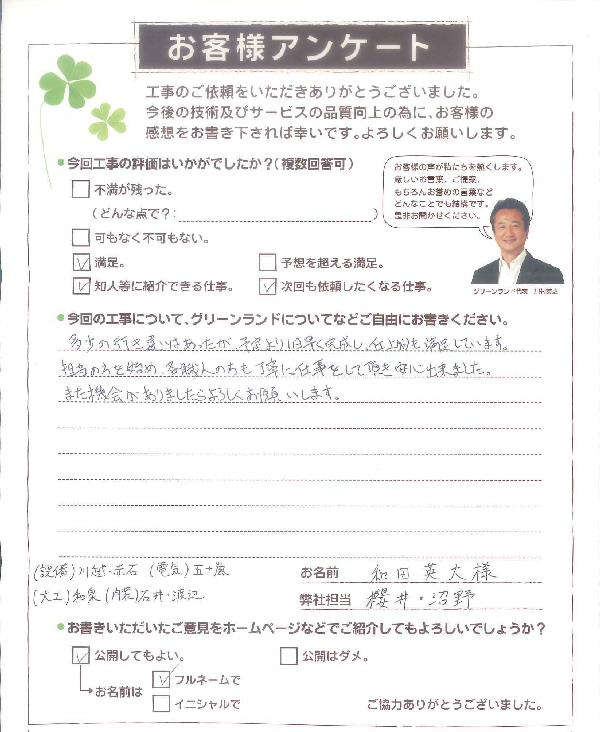 お客様アンケート
工事のご依頼をいただきありがとうございました。
今後の技術及びサービスの品質向上の為に、お客様の
感想をお書き下されば幸いです。よろしくお願いします。
今回工事の評価はいかがでしたか?(複数回答可)
不満が残った。
(どんな点で?: )
可もなく不可もない。
満足。
予想を超える満足。
知人等に紹介できる仕事。
次回も依頼したくなる仕事。
お客様の声が私たちを熱くします。
厳しいお言葉、ご提案、
もちろんお誉めの言葉など
どんなことでも結構です。
是非お聞かせください。
グリーンランド代表
今回の工事について、グリーンランドについてなどご自由にお書きください。
多少の行き違いはあったが、予定より1日早く完成し、仕上がりも満足しています。
担当の方を始め、各職人の方も丁寧に仕事をして頂き安心出来ました。
また機会がありましたらよろしくお願いします。
(設備)川越・赤石 (電気)五十嵐
(大工)和泉 (内装)石井・渡辺
お名前 和田英大様
弊社担当 櫻井・沼野
お書きいただいたご意見をホームページなどでご紹介してもよろしいでしょうか?
公開してもよい。
公開はダメ。
お名前は
フルネームで
イニシャルで
ご協力ありがとうございました。